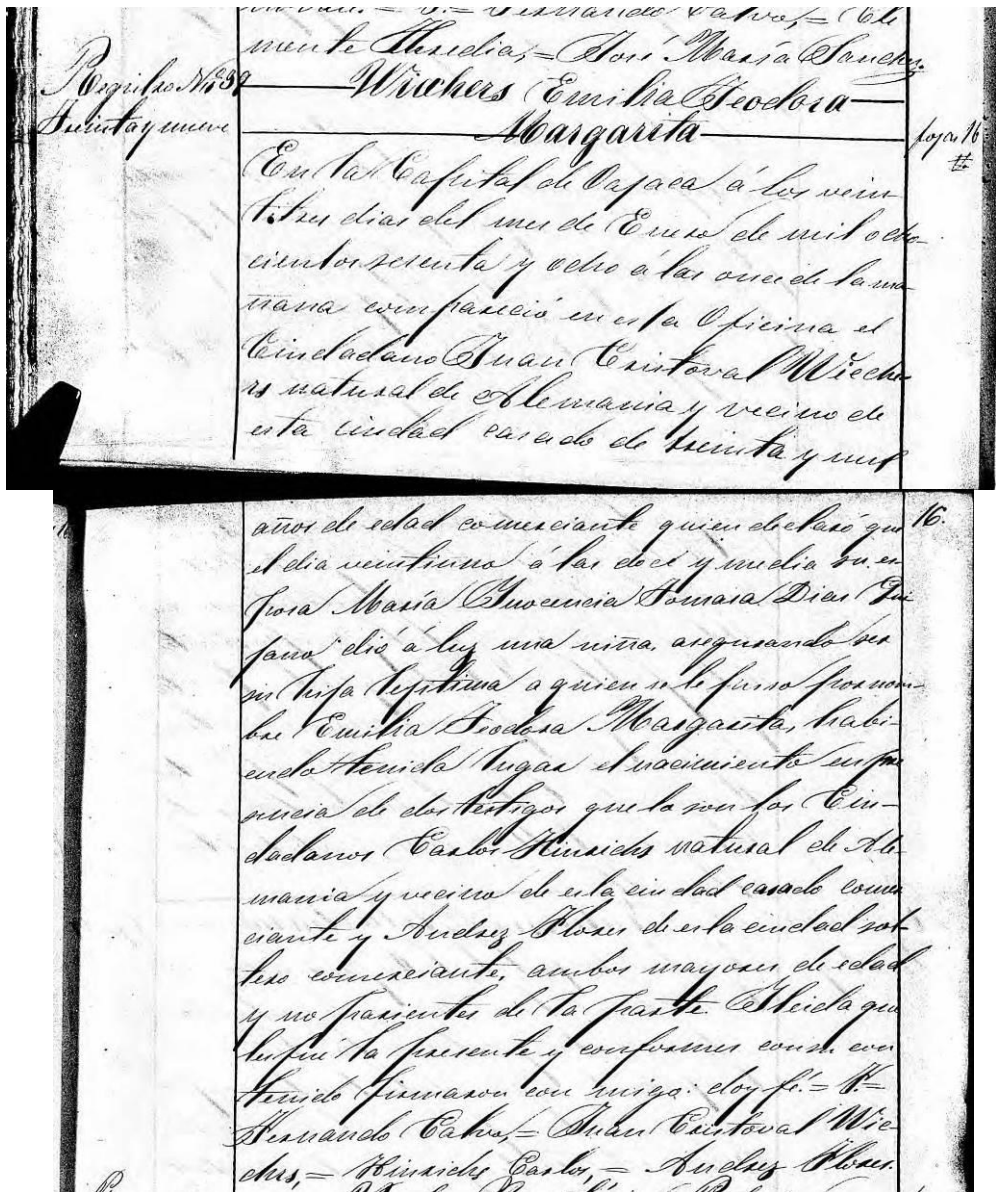 Fernando Calvo, = Cle
mente Heredia, = José María Sanchez.
Registro No. 39
Treinta y nueve
Wiechers Emilia Teodora
Margarita
fojas 16
En la Capital de Oajaca á los vein
titres dias del mes de Enero de mil ocho-
cientos sesenta y ocho á las once de la ma
ñana compareció en esta Oficina el
Ciudadano Juan Cristoval Wieche
rs natural de Alemania y vecino de
esta ciudad casado de treinta y
16.
años de edad comerciante quien declaró que
el dia veintiuno á las doce y media su es
posa María Ynocencia Tomasa Dias Qui
jano dió á luz una niña, asegurando ser
su hija lejitima a quien se le puso por nom-
bre Emilia Teodora Margarita, habi-
endo tenido lugar el nacimiento en pre
sencia de dos testigos que lo son los Ciu-
dadanos Carlos Hinrichs natural de Ale-
mania y vecino de esta ciudad casado comer
ciante y Andrez Flores de esta ciudad sol-
tero comerciante, ambos mayores de edad
y no parientes de la parte. Y leida que
les fué la presente y conformes con su con
tenido firmaron con migo: doy fé. = F. =
Fernando Calvo, = Juan Cristoval Wie-
chrs, = Hinrichs Carlos, = Andrez Flores.